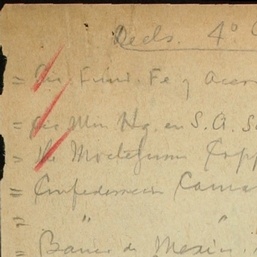 Decls. 4º
Cia. Fund. Fe y Acero
Cia Mra Hg. en S. A.
Moctezuma Copp
Confederacion Camar
" "
Banco de Mexico